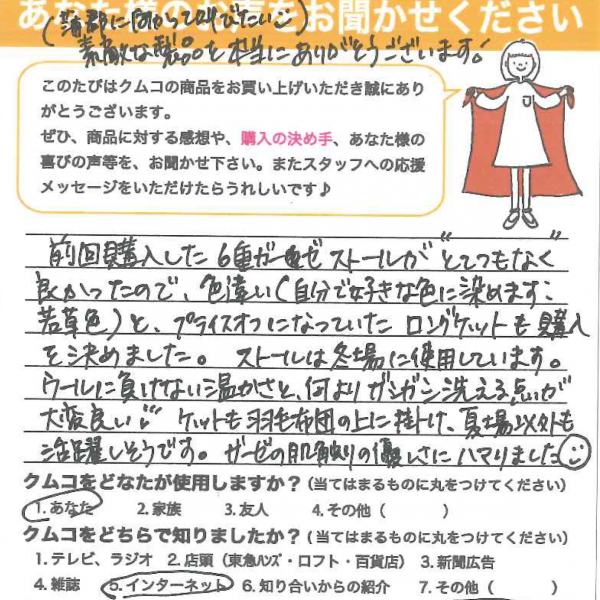 あなた様のお声をお聞かせください
(蒲郡に向かって叫びたい
素敵な製品を本当にありがとうございます!
このたびはクムコの商品をお買い上げいただき誠にあり
がとうございます。
ぜひ、商品に対する感想や、購入の決め手、あなた様の
喜びの声等を、お聞かせ下さい。またスタッフへの応援
メッセージをいただけたらうれしいです♪
前回購入した6重ガーゼストールが“とてつもなく”
良かったので、色違い(自分で好きな色に染めます:
若草色)と、プライスオフになっていたロングケットも購入
を決めました。ストールは冬場に使用しています。
ウールに負けない温かさと、何よりガシガシ洗える点が
大変良い!!ケットも羽毛布団の上に掛け、夏場以外も
活躍しそうです。ガーゼの肌触りの優しさにハマりました
クムコをどなたが使用しますか?(当てはまるものに丸をつけてください)
1. あなた 2. 家族 3. 友人 4. その他( )
クムコをどちらで知りましたか?(当てはまるものに丸をつけてください)
1. テレビ、ラジオ 2. 店頭(東急ハンズ・ロフト・百貨店) 3. 新聞広告
4. 雑誌 5. インターネット 6. 知り合いからの紹介 7. その他( )